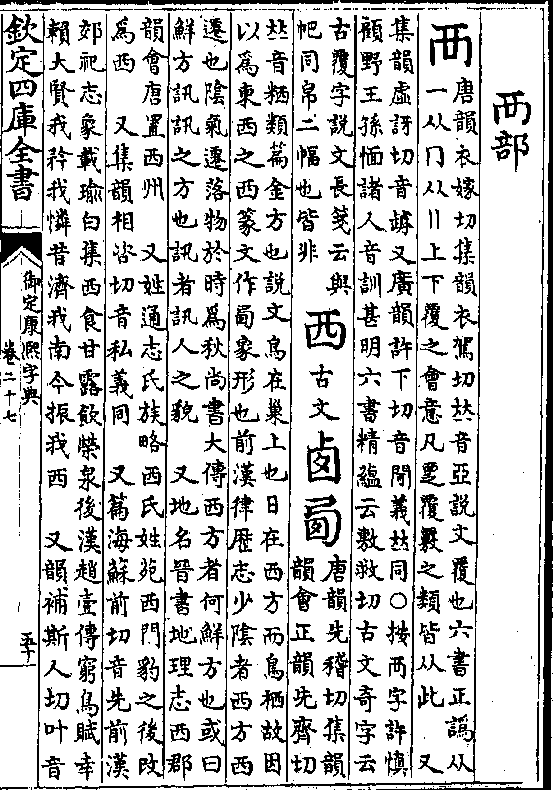 襾部
襾
唐韻衣嫁切集韻衣駕切𠀤音亞說文覆也六書正譌从
一从冂从〢上下覆之會意凡罣覆覈之類皆从此　又
集韻虛訝切音罅又廣韻許下切音閜義𠀤同○按襾字許慎
顧野王孫愐諸人音訓甚明六書精蘊云敷救切古文奇字云
古覆字說文長箋云與
帊同帛二幅也皆非
西　古文　卥㢴
唐韻先稽切集韻
韻會正韻先齊切
𠀤音栖類篇金方也說文鳥在巢上也日在西方而鳥栖故因
以爲東西之西篆文作㢴象形也前漢律歷志少陰者西方西
遷也陰氣遷落物於時爲秋尚書大傳西方者何鮮方也或曰
鮮方訊訊之方也訊者訊人之貌　又地名晉書地理志西郡
韻會唐置西州　又姓通志氏族略西氏姓苑西門豹之後改
爲西　又集韻相咨切音私義同　又篇海蘇前切音先前漢
郊祀志象載瑜白集西食甘露飲榮泉後漢趙壹傳窮鳥賦幸
賴大賢我矜我憐昔濟我南今振我西　又韻補斯人切叶音
欽定四庫全書
御定康熙字典
卷二十七